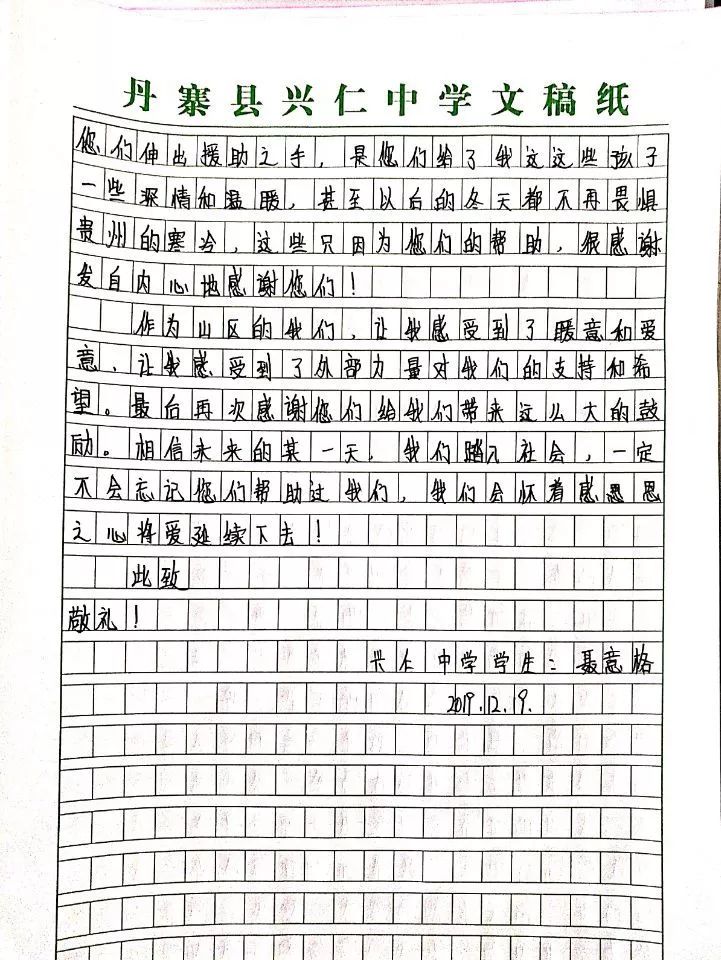 丹寨县兴仁中学文稿纸
您们伸出援助之手，是您们给了我这这些孩子
一些深情和温暖，甚至以后的冬天都不再畏惧
贵州的寒冷，这些只因为您们的帮助，很感谢
发自内心地感谢您们！
作为山区的我们，让我感受到了暖意和爱
意，让我感受到了外部力量对我们的支持和希
望。最后再次感谢您们给我们带来这么大的鼓
励。相信未来的某一天，我们踏入社会，一定
不会忘记您们帮助过我们，我们会怀着感恩恩
之心将爱延续下去！
此致
敬礼！
兴仁中学学生：聂意格
2019.12.19.